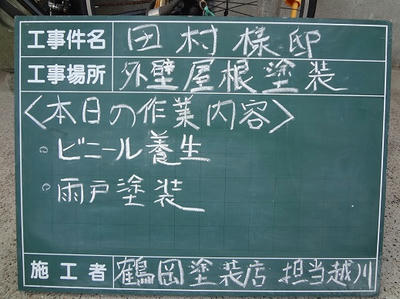 工事件名 田村様邸
工事場所 外壁屋根塗装
〈本日の作業内容〉
。ビニール養生
。雨戸塗装
施工者 鶴岡塗装店 担当越川